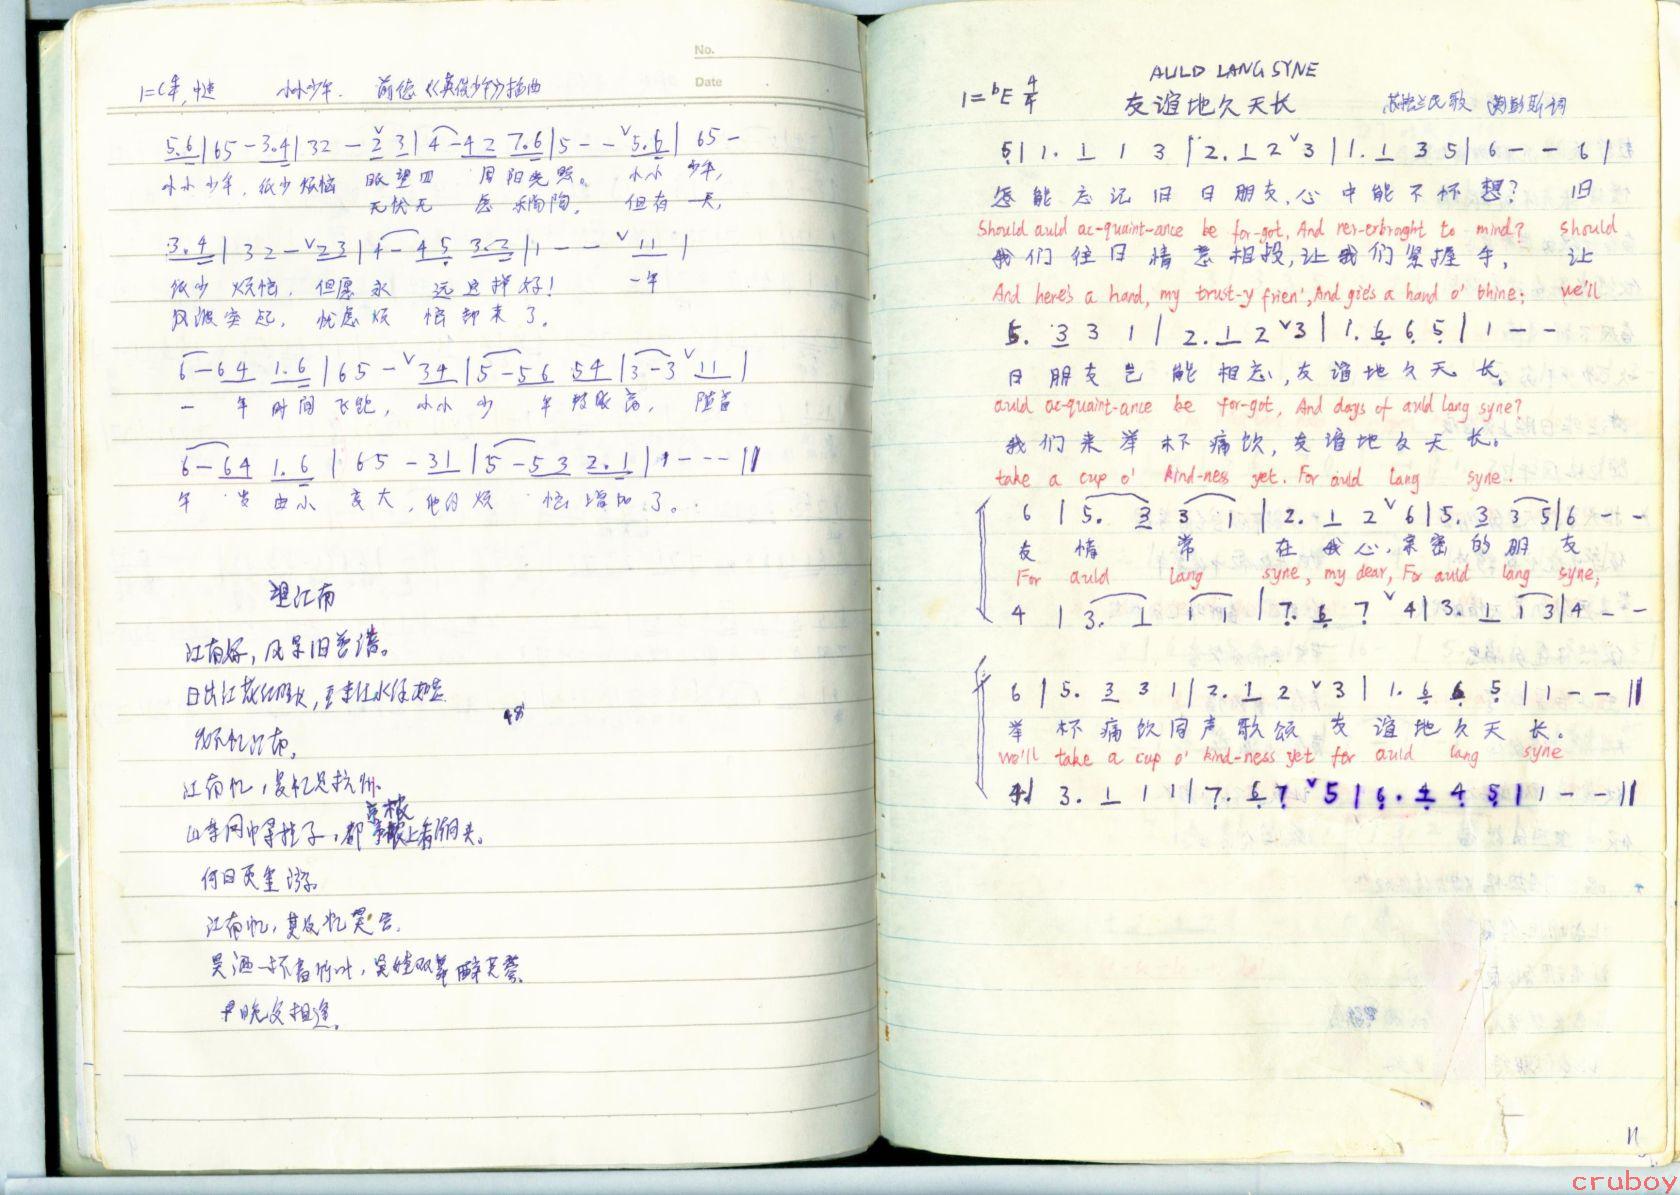 No.
Date
1=C 4/4, 中速 小小少年. 前德《英俊少年》插曲
5.6|65-3.4|32-ˇ23|4-42 7.6|5--ˇ5.6|65-
小小少年,很少烦恼 眼望四 周阳光照。 小小 少年,
无忧无 虑 乐陶陶, 但有 一天,
3.4|32-ˇ23|4-45 3.2|1--ˇ11|
很少 烦恼, 但愿永 远这样好! 一年
风波突起, 忧虑烦 恼都来了。
6-64 1.6|65-ˇ34|5-56 54|3-3ˇ11|
一 年 时间 飞跑, 小小 少 年 高, 随着
6-64 1.6|65-31|5-53 2.1|1---||
年 岁 由小 变大,他的烦 恼增加了。
望江南
江南好,风景旧曾谙。
日出江花红胜火,
能不忆江南。
江南忆,最忆是杭州。
亭
山寺月中寻桂子,郡亭枕上看潮头。
何日更重游。
江南忆,其次忆吴宫.
吴酒一杯春竹叶,吴娃双舞醉芙蓉。
早晚复相逢。
AULD LANG SYNE
1=ᵇE 4/4 友谊地久天长 苏格兰民歌 彭斯词
5|1. 1 1 3|2. 1 2ˇ3|1. 1 3 5|6 - - 6|
怎能忘记旧日朋友,心中能不怀想? 旧
Should auld ac-quaint-ance be for-got, And nev-erbroght to mind? should
我们往日情意相投,让我们紧握手, 让
And here's a hand, my trust-y frien', And gie's a hand o' thine; we'll
5. 3 3 1|2. 1 2ˇ3|1. 6 6 5|1 - -
日朋友岂能相忘,友谊地久天长,
auld ac-quaint-ance be for-got, And days of auld lang syne?
我们来举杯痛饮,友谊地久天长。
take a cup o' kind-ness yet. For auld lang syne.
6|5. 3 3 1|2. 1 2ˇ6|5. 3 3 5|6 - -
友 情 常 在我心,亲密的朋友
For auld lang syne, my dear, For auld lang syne;
4|3. 1 1 1|7. 6 7ˇ4|3. 1 1 3|4 - -
6|5. 3 3 1|2. 1 2ˇ3|1. 6 6 5|1 - -||
举杯痛饮同声歌颂友谊地久天长。
we'll take a cup o' kind-ness yet for auld lang syne
4|3. 1 1 1|7. 6 7ˇ5|6. 4 4 5|1 - -||
11
cruboy